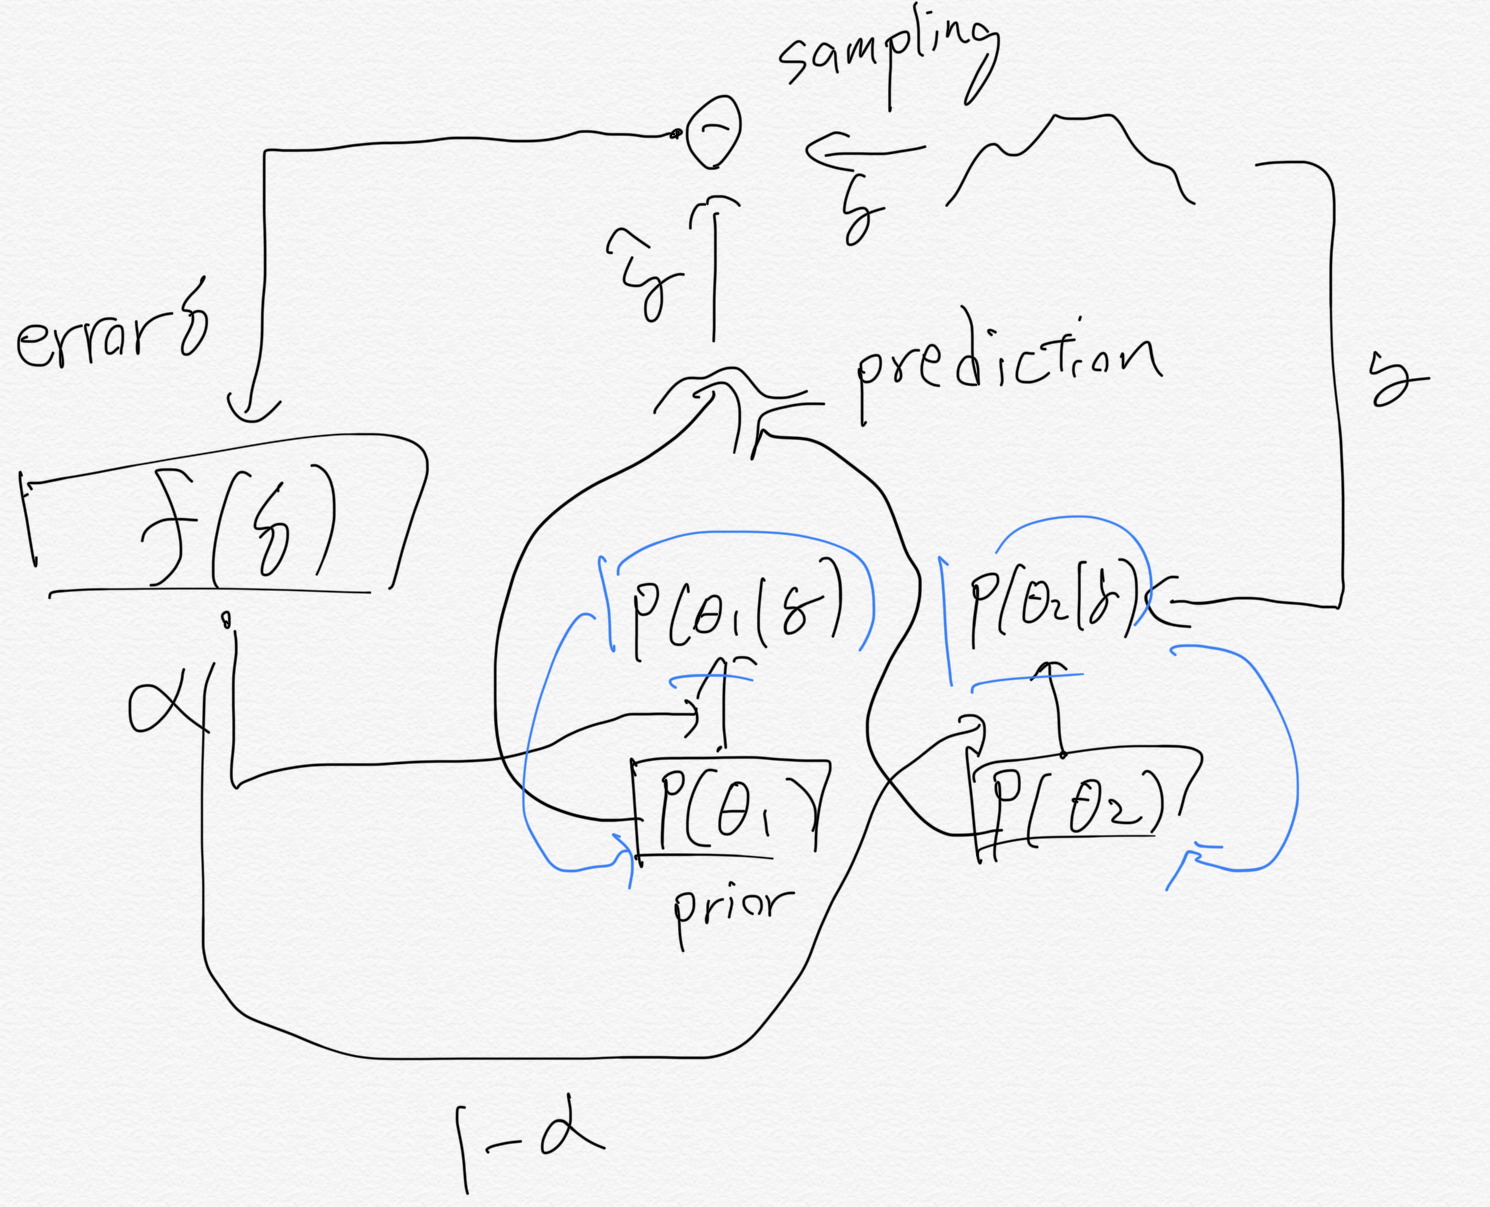 sampling
−
y
ŷ
error δ
prediction
y
f(δ)
P(θ₁|y)
P(θ₂|y)
α
P(θ₁)
P(θ₂)
prior
1-α